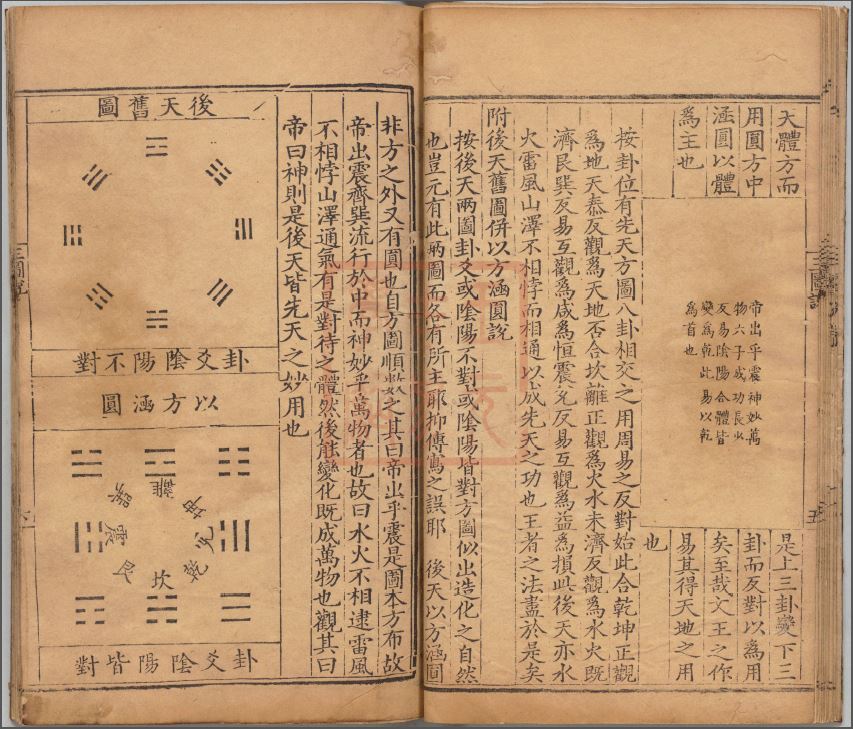 天體方而
用圓方中
涵圓以體
為主也
帝出乎震神妙萬
物六子成功長少
反易陰陽合體皆
變為乾此易以乾
為首也
是上三卦變下三
卦而反對以為用
矣至哉文王之作
易其得天地之用
也
按卦位有先天方圖八卦相交之用周易之反對始此合乾坤正觀
為地天泰反觀為天地否合坎離正觀為火水未濟反觀為水火既
濟艮巽反易互觀為咸為恒震兌反易互觀為益為損此後天亦水
火雷風山澤不相悖而相通以成先天之功也王者之法盡於是矣
附後天舊圖併以方涵圓說
按後天兩圖卦爻或陰陽不對或陰陽皆對方圖似出造化之自然
也豈元有此兩圖而各有所主耶抑傳寫之誤耶 後天以方涵圓
非方之外又有圓也自方圖順數之其曰帝出乎震是圖本方布故
帝出震齊巽流行於中而神妙乎萬物者也故曰水火不相逮雷風
不相悖山澤通氣有是對待之體然後能變化既成萬物也觀其曰
帝曰神則是後天皆先天之妙用也
後天舊圖
卦爻陰陽不對
以方涵圓
離
坤
兌
乾
坎
艮
震
巽
卦爻陰陽皆對